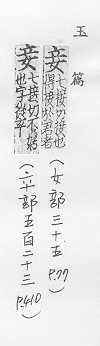 玉篇
妾 七接切不娉也字從䇂
(䇂部五百二十三 P.410)
妾 七接切妾接也得接於君者
(女部三十五 P.77)